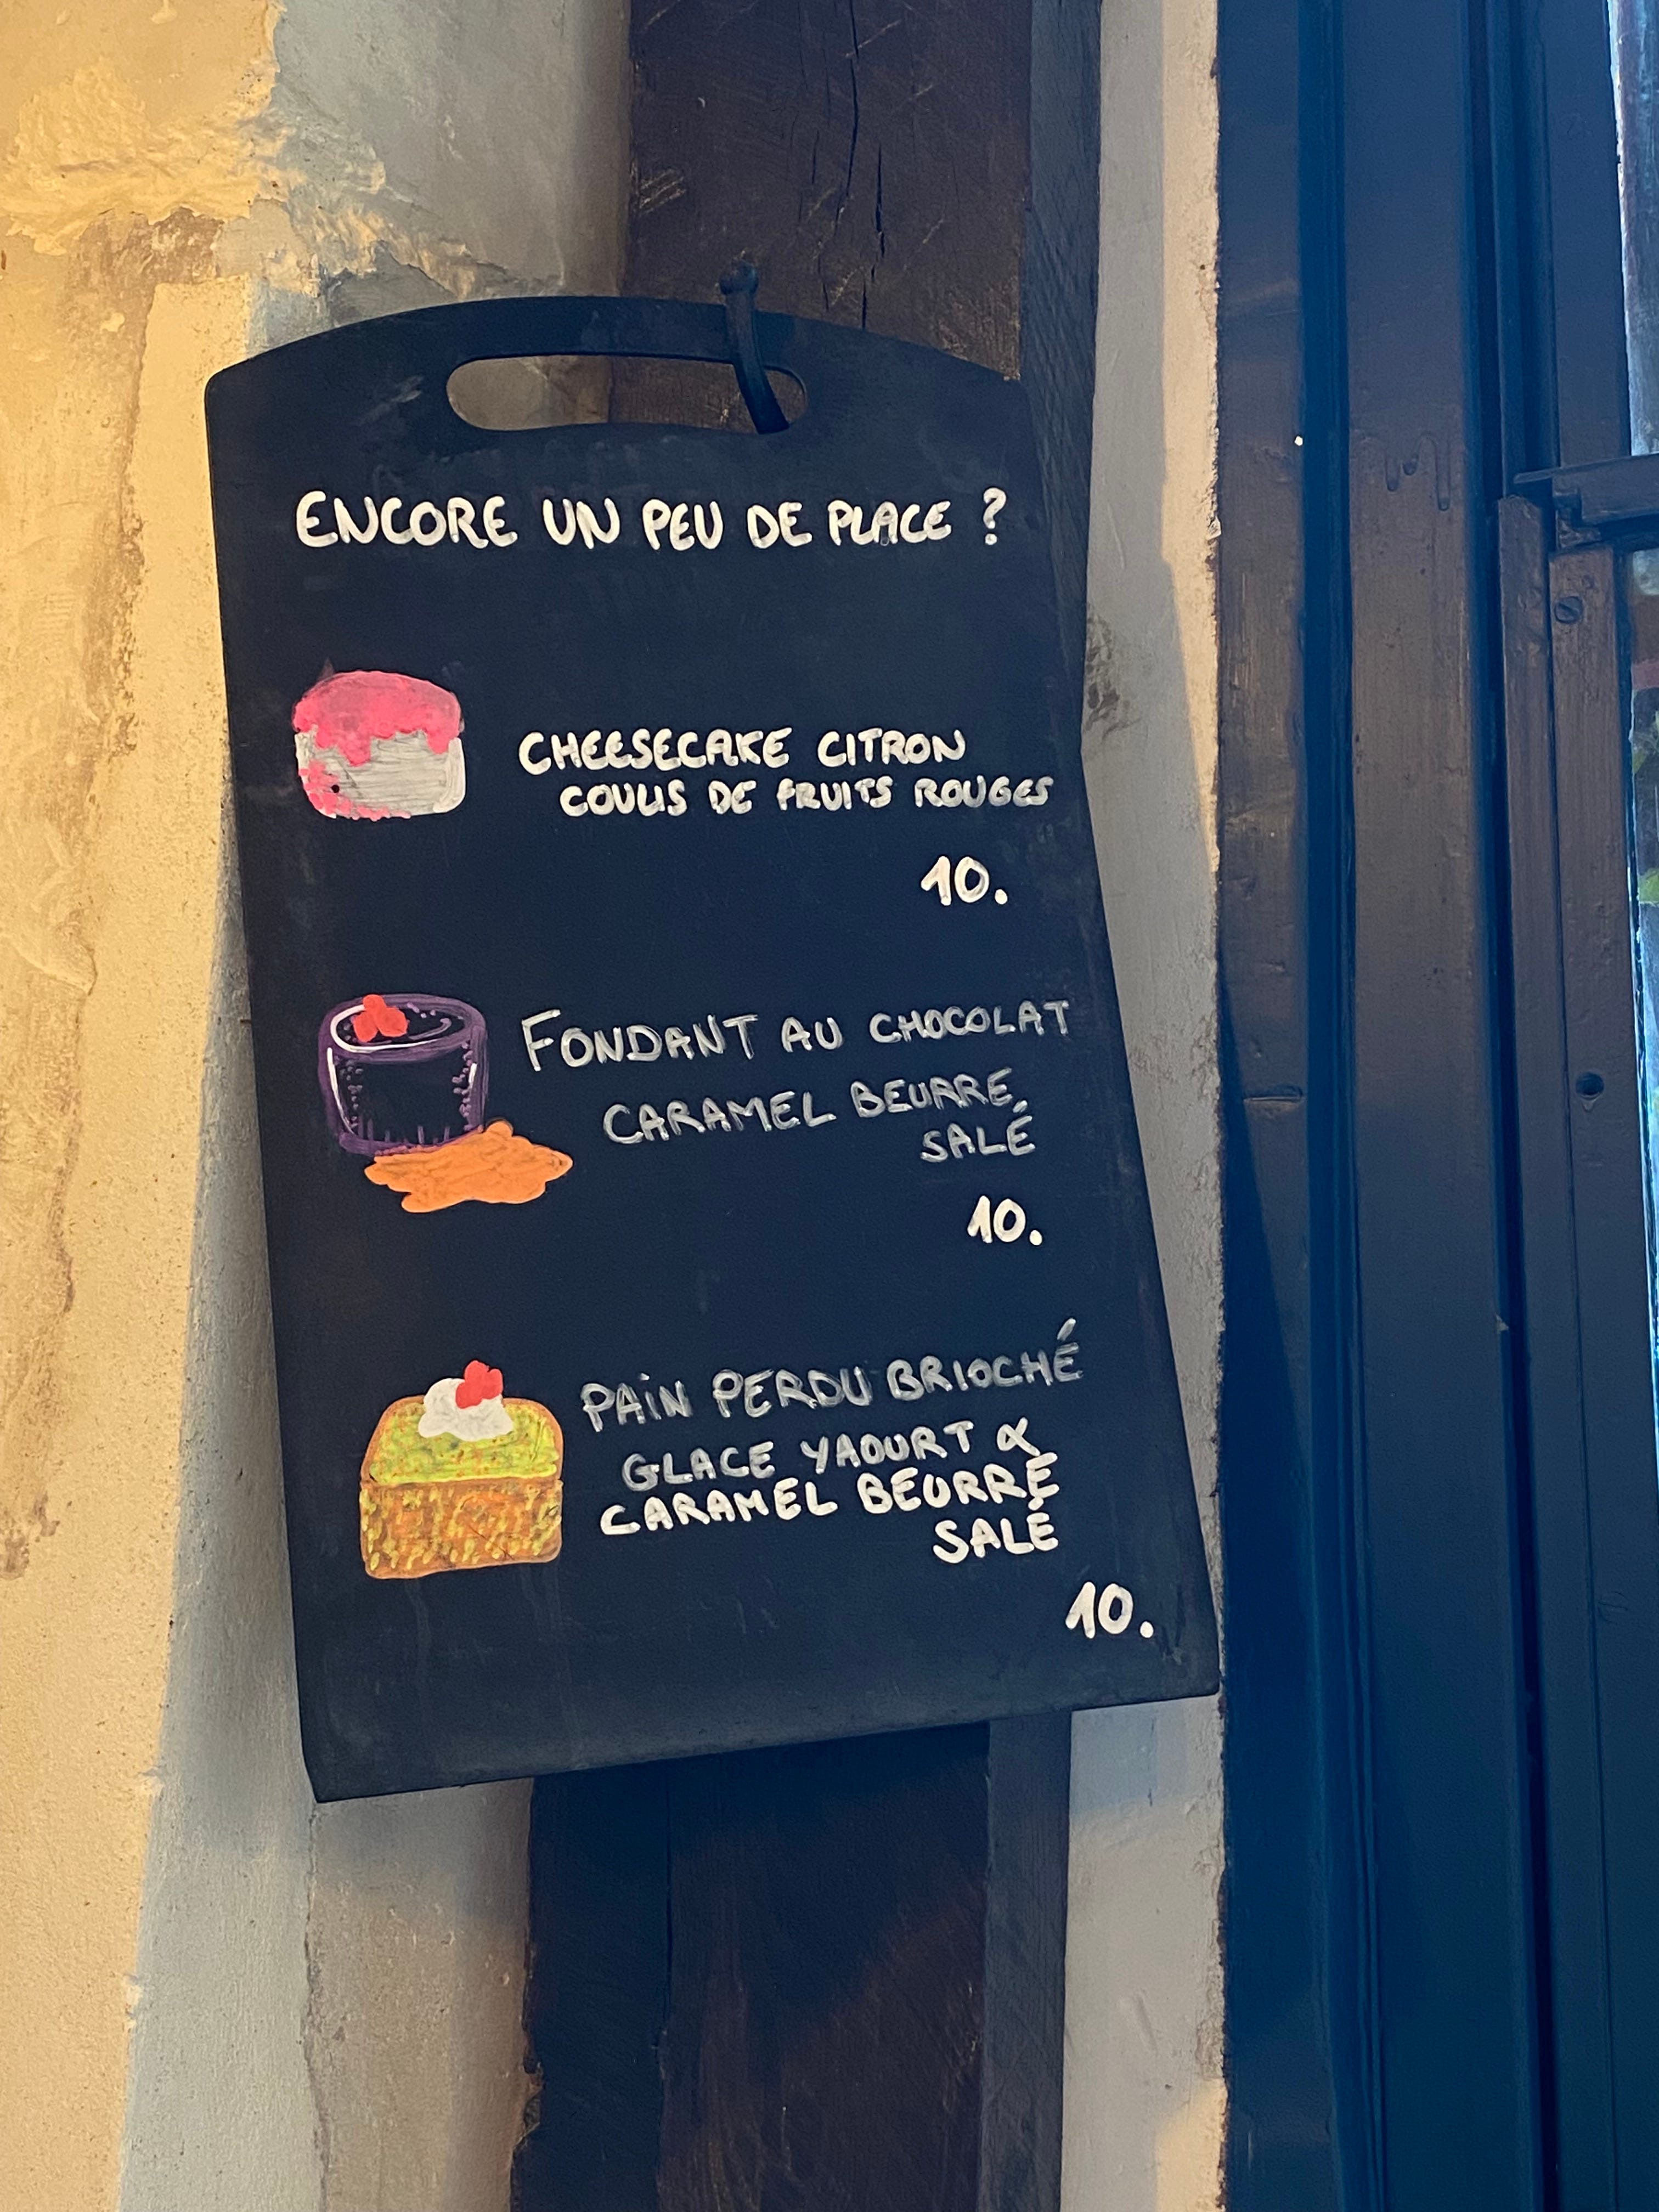 ENCORE UN PEU DE PLACE ?
CHEESECAKE CITRON
COULIS DE FRUITS ROUGES
10.
FONDANT AU CHOCOLAT
CARAMEL BEURRE
SALÉ
10.
PAIN PERDU BRIOCHÉ
GLACE YAOURT &
CARAMEL BEURRE
SALÉ
10.